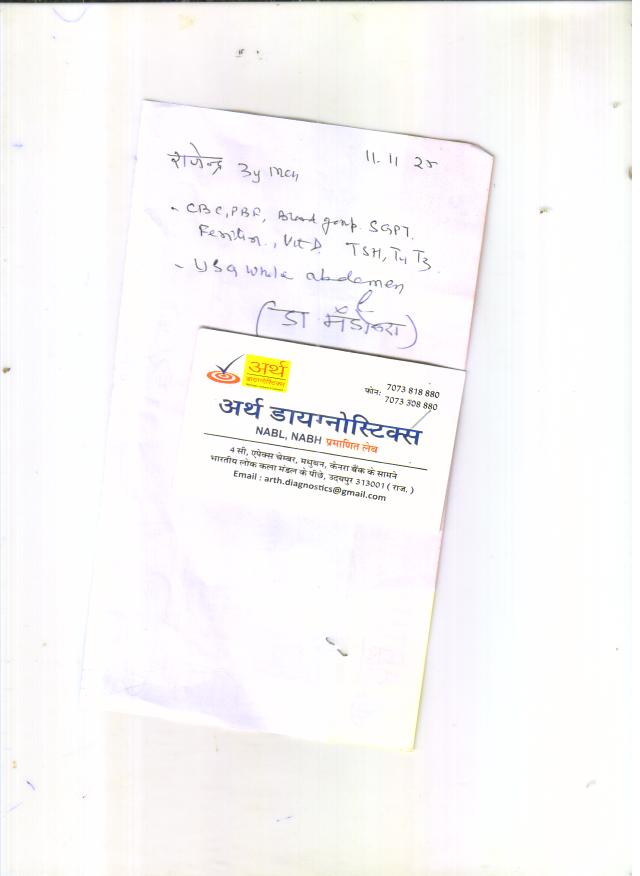 राजेन्द्र 3y mch
11.11 25
- CBC, PBF, Blood group. SGPT.
Ferritin., Vit D. TSH, T4 T3.
- USG whole abdomen
(डा
अर्थ
डायग्नोस्टिक्स
फोन: 7073 818 880
7073 308 880
अर्थ डायग्नोस्टिक्स
NABL, NABH प्रमाणित लेब
4 सी, एपेक्स चेम्बर, मधुबन, केनरा बैंक के सामने
भारतीय लोक कला मंडल के पीछे, उदयपुर 313001 ( राज. )
Email : arth.diagnostics@gmail.com